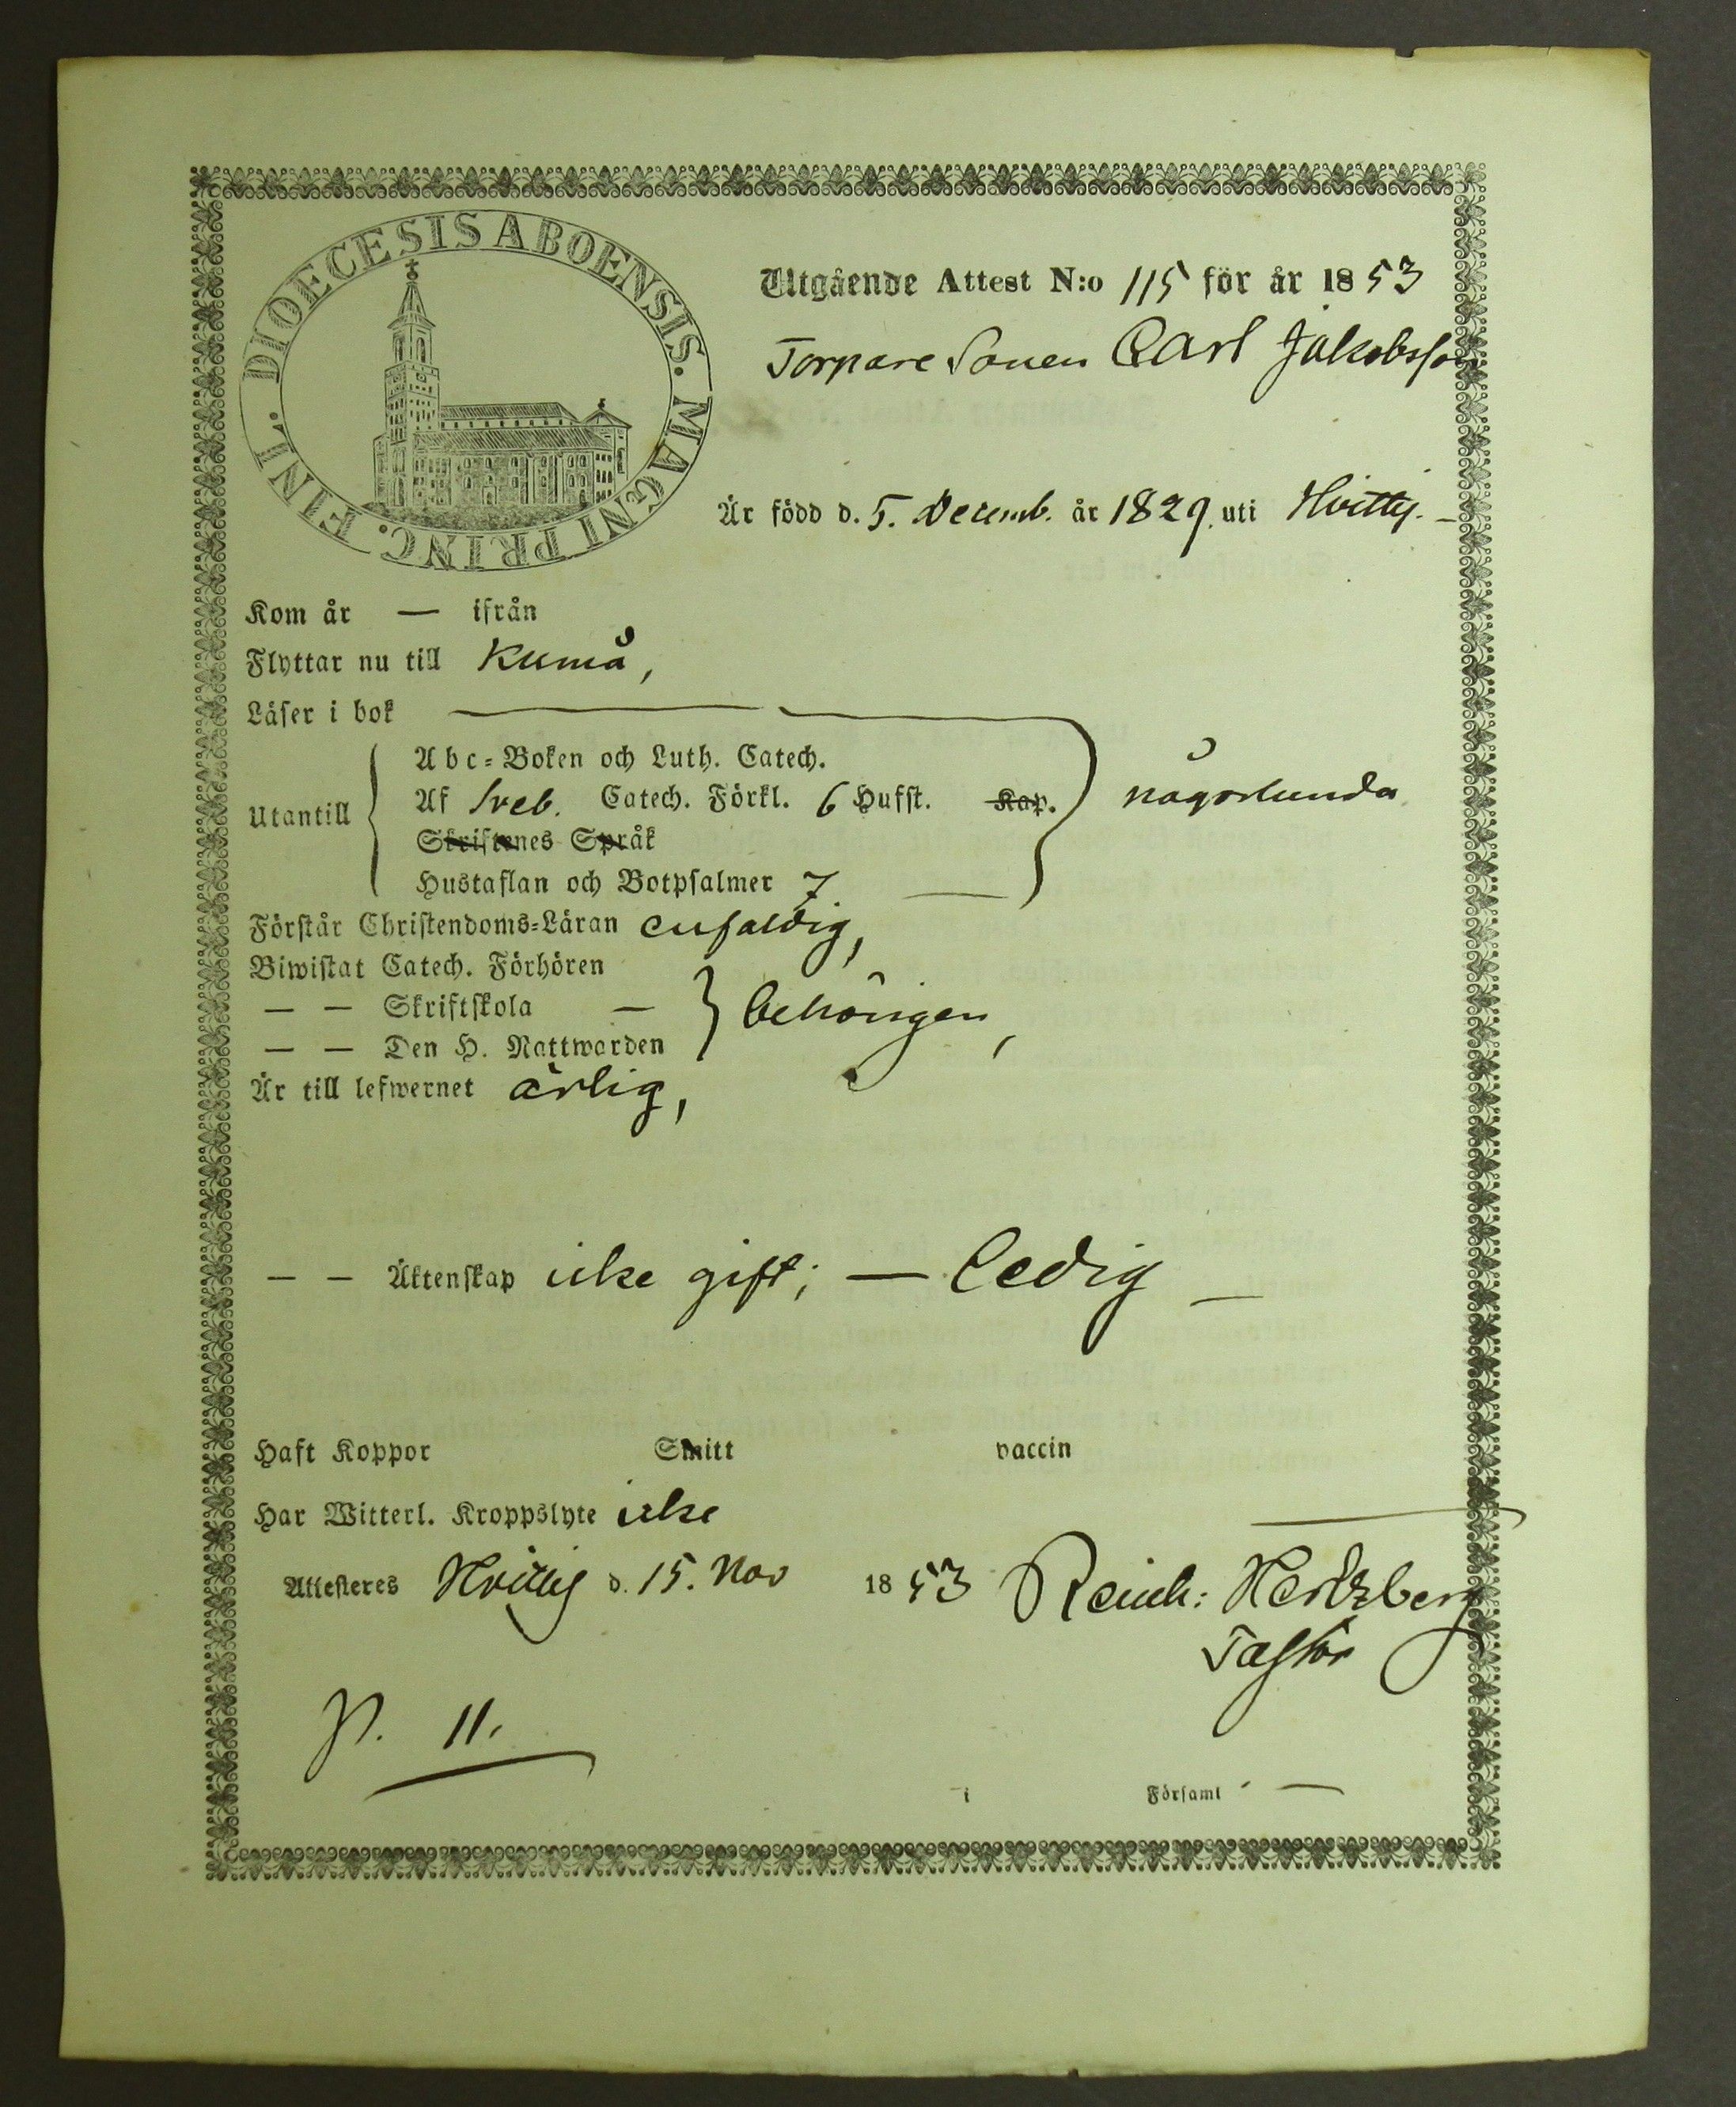 DIOECESIS ABOENSIS. MAGNI PRINC. FINL.
Utgående Attest N:o 115 för år 1853
Torpare Sonen Carl Jakobsson
Är född d. 5. Decemb. år 1829. uti Hvittis. –
Kom år — ifrån
Flyttar nu till Kumå,
Läser i bok
Utantill
Abc-Boken och Luth. Catech.
Af Sveb. Catech. Förkl. 6 Hufst. Kap.
någorlunda
Skriftenes Språk
Hustaflan och Botpsalmer 7 —
Förstår Christendoms-Läran enfaldig,
Biwistat Catech. Förhören
— — Skriftskola —
behörigen,
— — Den H. Nattwarden
Är till lefwernet ärlig,
— — Äktenskap icke gift; — ledig —
Haft Koppor Smitt vaccin
Har Witterl. Kroppslyte icke
Attesteres Hvittis d. 15. Nov 1853 Reinh: Hertzberg
Pastor
p. 11.
i Församl –